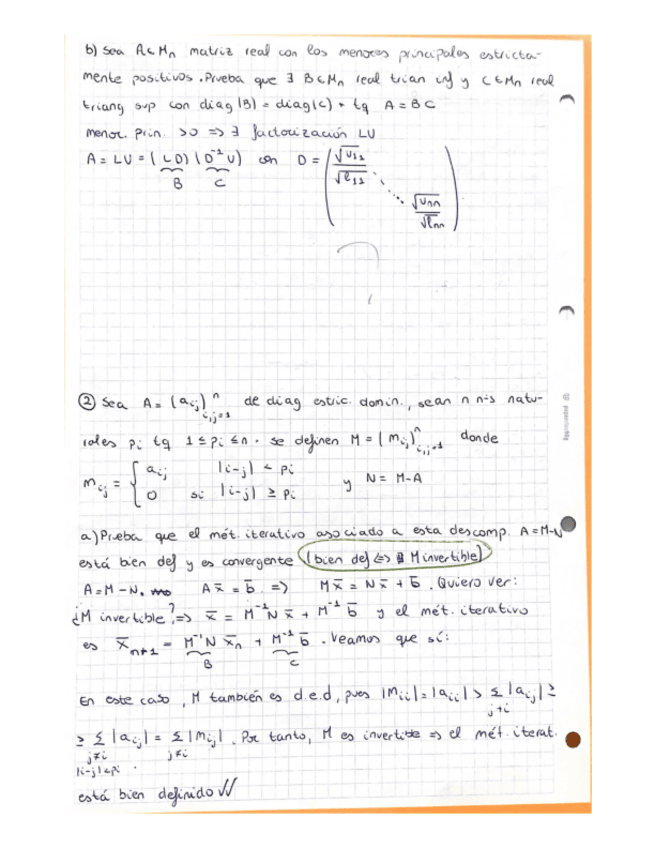 b) Sea A∈Mn matriz real con los menores principales estricta-
mente positivos. Prueba que ∃ B∈Mn real trian inf y C∈Mn real
triang sup con diag(B) = diag(C) + tq A = BC
menor. prin. >0 => ∃ factorización LU
A = LU = (LD)(D⁻¹U) con D = (√u₁₁/√l₁₁ ⋱ √unn/√lnn)
B C
② Sea A = (aij)ⁿi,j=1 de diag estric. domin., sean n nºs natu-
rales pi tq 1 ≤ pi ≤ n. Se definen M = (mij)ⁿi,j=1 donde
mij = { aij |i-j| < pi
0 si |i-j| ≥ pi y N = M-A
a) Prueba que el mét. iterativo asociado a esta descomp. A = M-N
está bien def y es convergente (bien def <=> M invertible)
A = M-N. Ax̄ = b̄ => Mx̄ = Nx̄ + b̄. Quiero ver:
¿M invertible? => x̄ = M⁻¹Nx̄ + M⁻¹b̄ y el mét. iterativo
es x̄n+1 = M⁻¹N x̄n + M⁻¹b̄. Veamos que sí:
B C
En este caso, M también es d.e.d, pues |mii| = |aii| > Σ |aij| ≥
j≠i
≥ Σ |aij| = Σ |mij|. Por tanto, M es invertible => el mét. iterat.
j≠i j≠i
|i-j|<pi
está bien definido √√